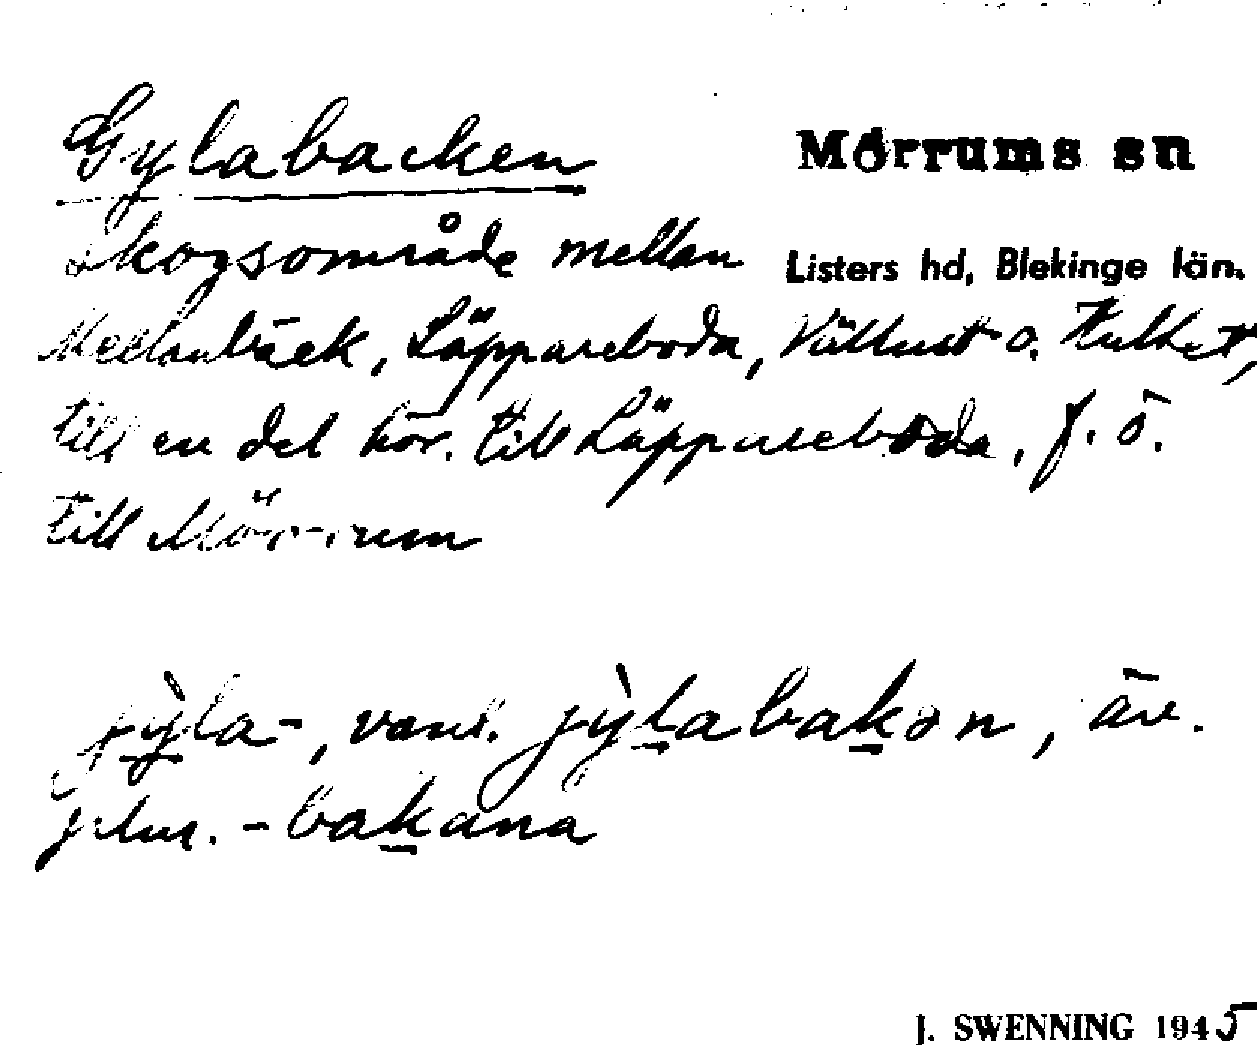 Gylabacken
Mörrums sn
skogsområde mellan
Listers hd, Blekinge län.
Mellanbäck, Läppareboda, o.
till en del hör. till Läppareboda, f. ö.
till Mörrum
jỳ̠la-, vanl. jỳl̠abak̠ən, äv.
plur. -bak̠ana
J. SWENNING 1945